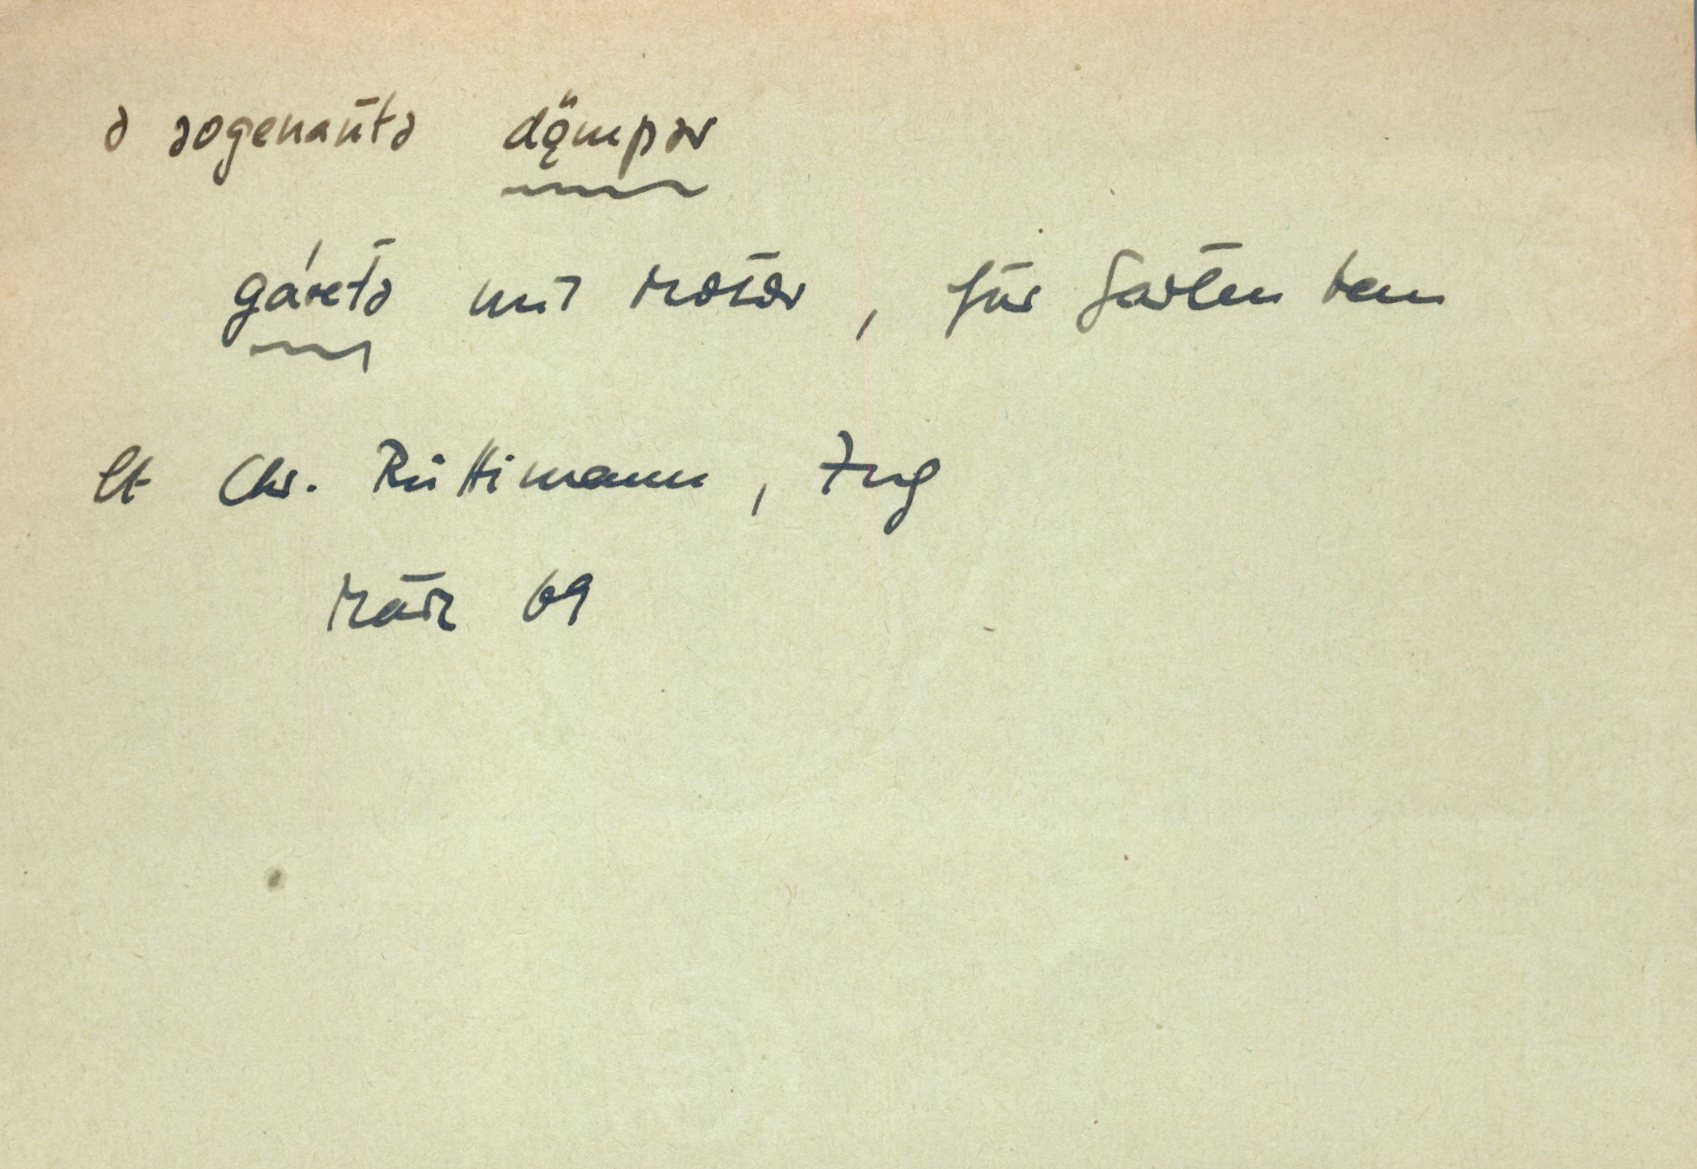 ə sogenañtə dö̧mpər
gárətə mit Motor, für Gartenbau
lt Chr. Rüttimann, Zug
März 69